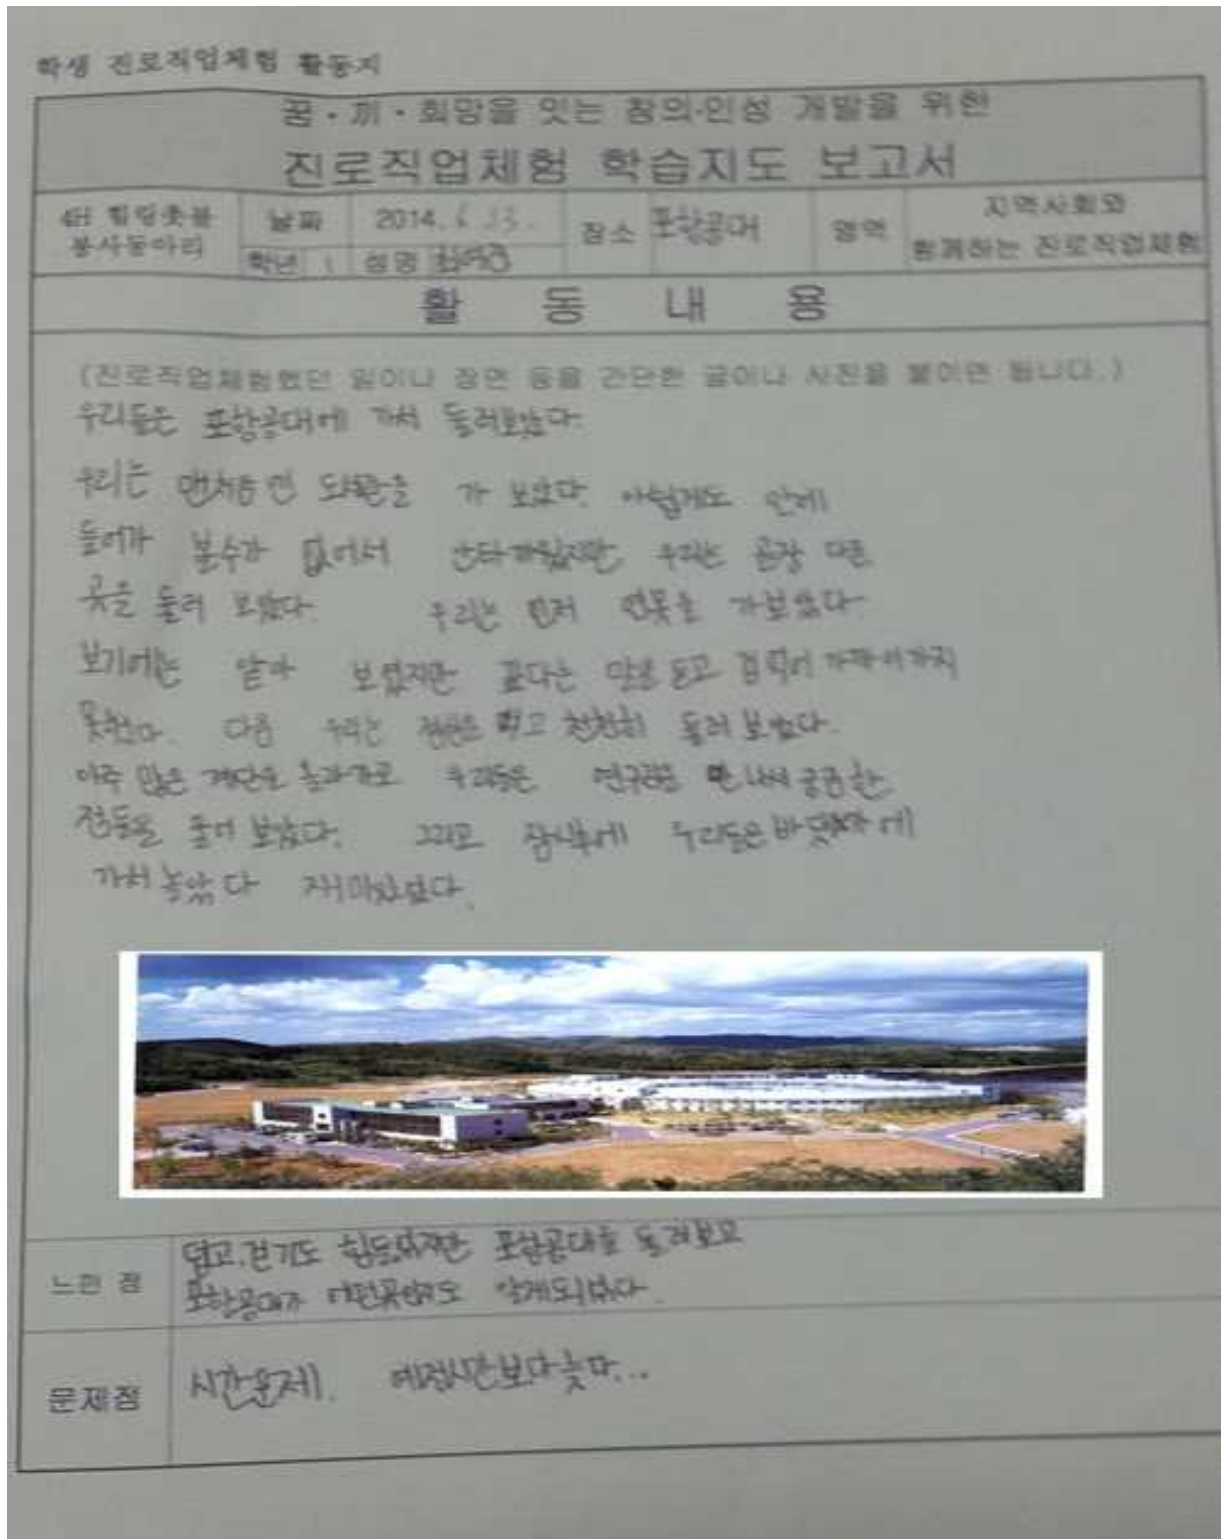 학생 진로직업체험 활동지
꿈·끼·희망을 잇는 창의·인성 개발을 위한
진로직업체험 학습지도 보고서
4H 힐링촛불 봉사동아리
날짜 2014. 6
장소 포항공대
영역
지역사회와 함께하는 진로직업체험
학년 1 성명
활 동 내 용
(진로직업체험했던 일이나 장면 등을 간단한 글이나 사진을 붙이면 됩니다.)
우리들은 포항공대에 가서 둘러보았다.
우리는 맨처음엔 도서관을 가 보았다. 아쉽게도 안에
들어가 볼수가 없어서 안타까웠지만 우리는 곧장 다른
곳을 둘러 보았다. 우리는 먼저 연못을 가보았다
보기에는 얕아 보였지만 깊다는 말을 듣고 겁먹어 가까이가지
못했다. 다음 우리는 점심은 먹고 천천히 둘러 보았다.
아주 많은 계단을 올라가고 우리들은 만나서 궁금한
점들을 둘러 보았다. 그리고 잠시후에 우리들은 바닷가에
가서 놀았다 재미있었다.
느낀 점
덥고, 걷기도 힘들었지만 포항공대를 둘러보고
포항공대가 어떤곳인지도 알게되었다.
문제점
시간문제. 예정시간보다 늦다...